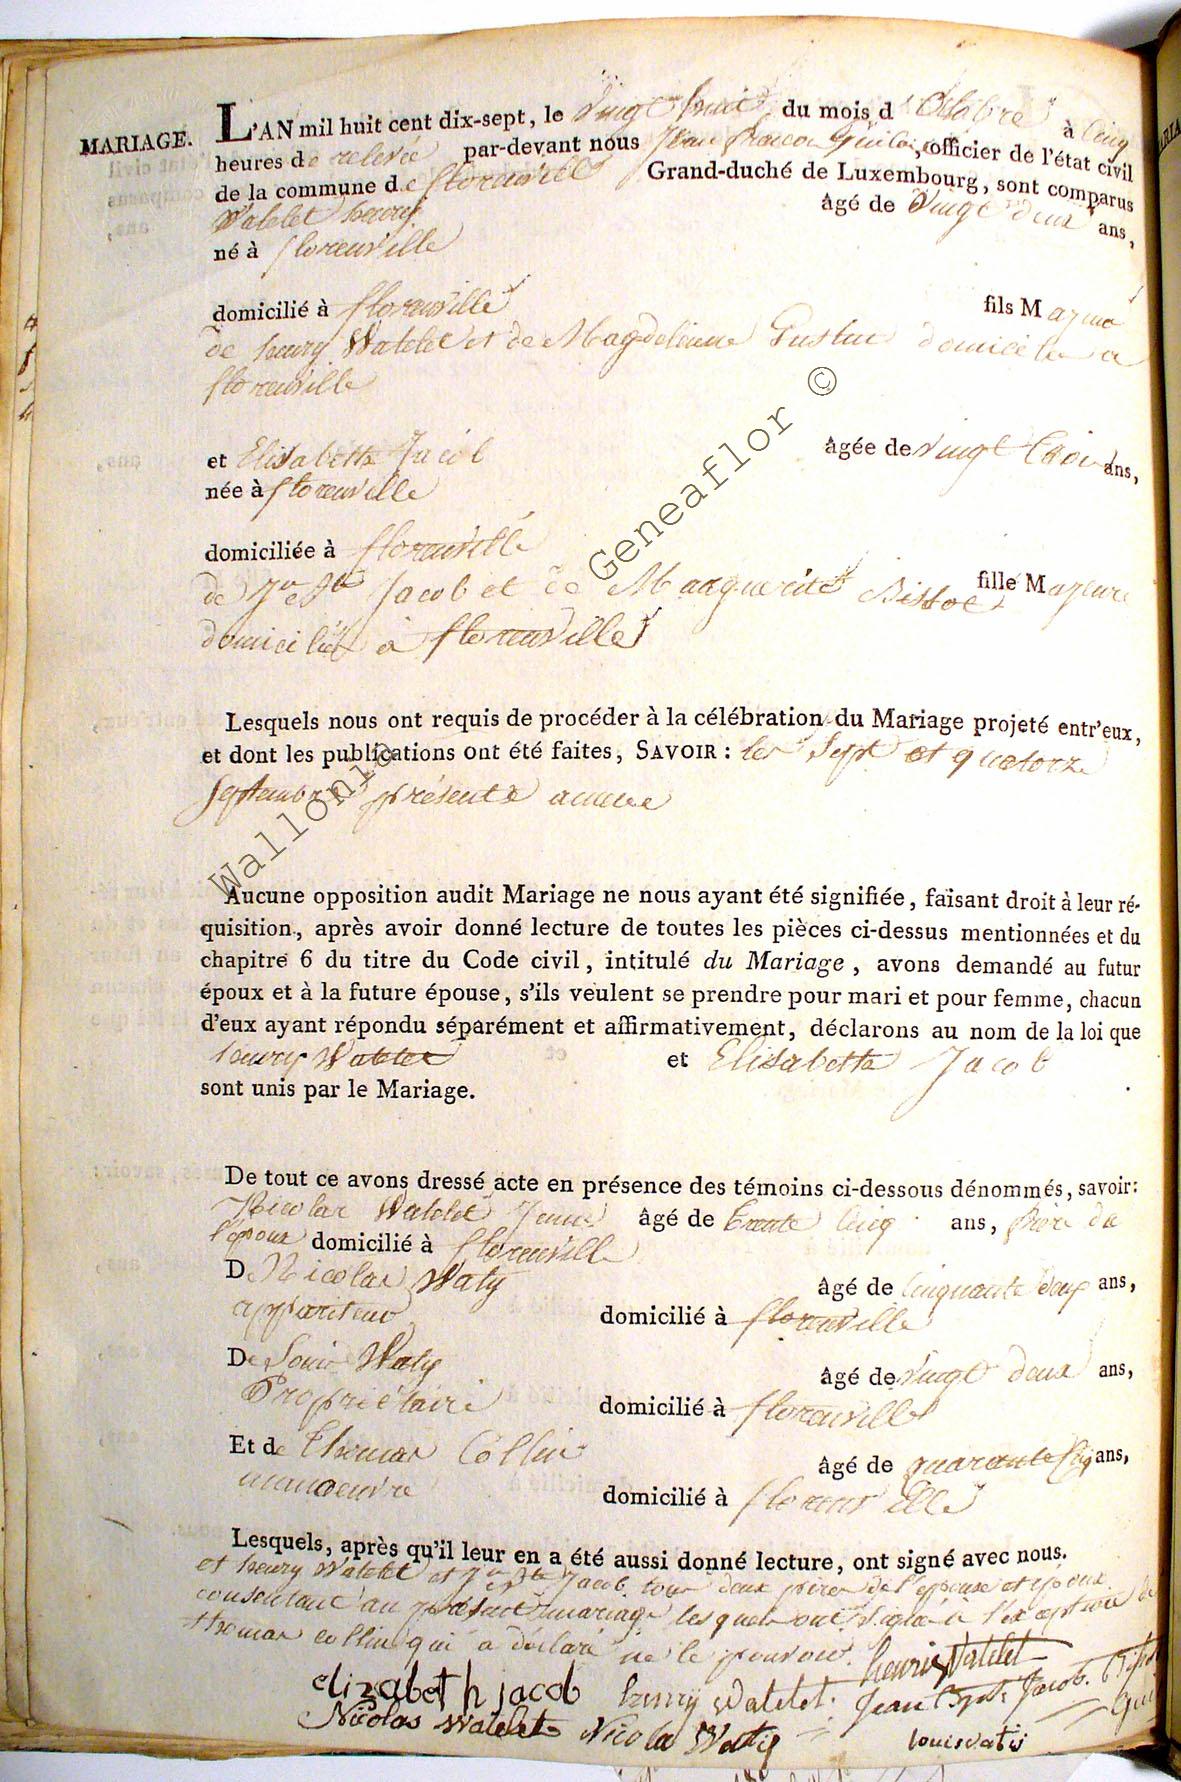 MARIAGE. L'AN mil huit cent dix-sept, le vingt huit du mois d'Octobre à cinq
heures de relevée par-devant nous Jean officier de l'état civil
de la commune de florenville Grand-duché de Luxembourg, sont comparus
Watelet henry âgé de vingt deux ans,
né à florenville
domicilié à florenville fils Majeur
de henry Watelet et de Magdelienne domicilés a
florenville
et Elisabette Jacob âgée de vingt trois ans,
née à florenville
domiciliée à florenville
fille Majeure
de Jn Bte Jacob et de Marguerite
domicilié à florenville
Lesquels nous ont requis de procéder à la célébration du Mariage projeté entr'eux,
et dont les publications ont été faites, SAVOIR : les sept et quatorze
septembre présente annee
Aucune opposition audit Mariage ne nous ayant été signifiée, faisant droit à leur ré-
quisition, après avoir donné lecture de toutes les pièces ci-dessus mentionnées et du
chapitre 6 du titre du Code civil, intitulé du Mariage, avons demandé au futur
époux et à la future épouse, s'ils veulent se prendre pour mari et pour femme, chacun
d'eux ayant répondu séparément et affirmativement, déclarons au nom de la loi que
henry Watelet et Elisabette Jacob
sont unis par le Mariage.
De tout ce avons dressé acte en présence des témoins ci-dessous dénommés, savoir:
Nicolas Watelet Jeune âgé de trente cinq ans, frère de
l'époux domicilié à florenville
De Nicolas Waty âgé de cinquante deux ans,
appariteur domicilié à florenville
De Louis Waty âgé de vingt deux ans,
Propriétaire domicilié à florenville
Et de thomas Collin âgé de quarante cinq ans,
manoeuvre domicilié à florenville
Lesquels, après qu'il leur en a été aussi donné lecture, ont signé avec nous.
et henry Watelet et Jn Bte Jacob tous deux pères de l'epouse et epoux
consentant au présent mariage lesquels ont signé à l'exception de
thomas collin qui a déclaré ne le pouvoir.
henri Watelet
elizabeth jacob henry watelet. Jean Bpte Jacob.
Nicolas watelet Nicola Watij
louis vatij
Wallonia Geneaflor ©